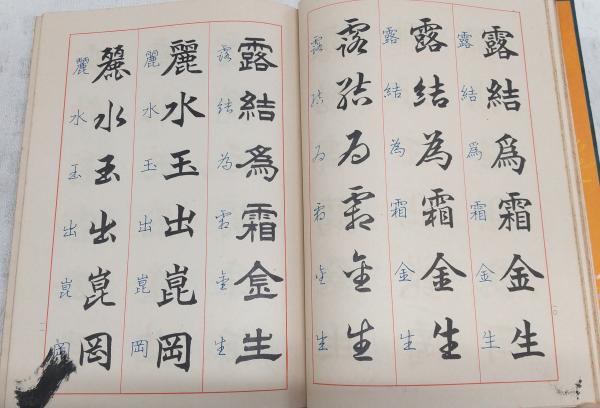 露結爲霜金生
露結爲霜金生
露結為霜金生
露結為霜金生
露結為霜金生
露結為霜金生
露結爲霜金生
露結為霜金生
麗水玉出崑岡
麗水玉出崑岡
麗水玉出崑岡
麗水玉出崑岡